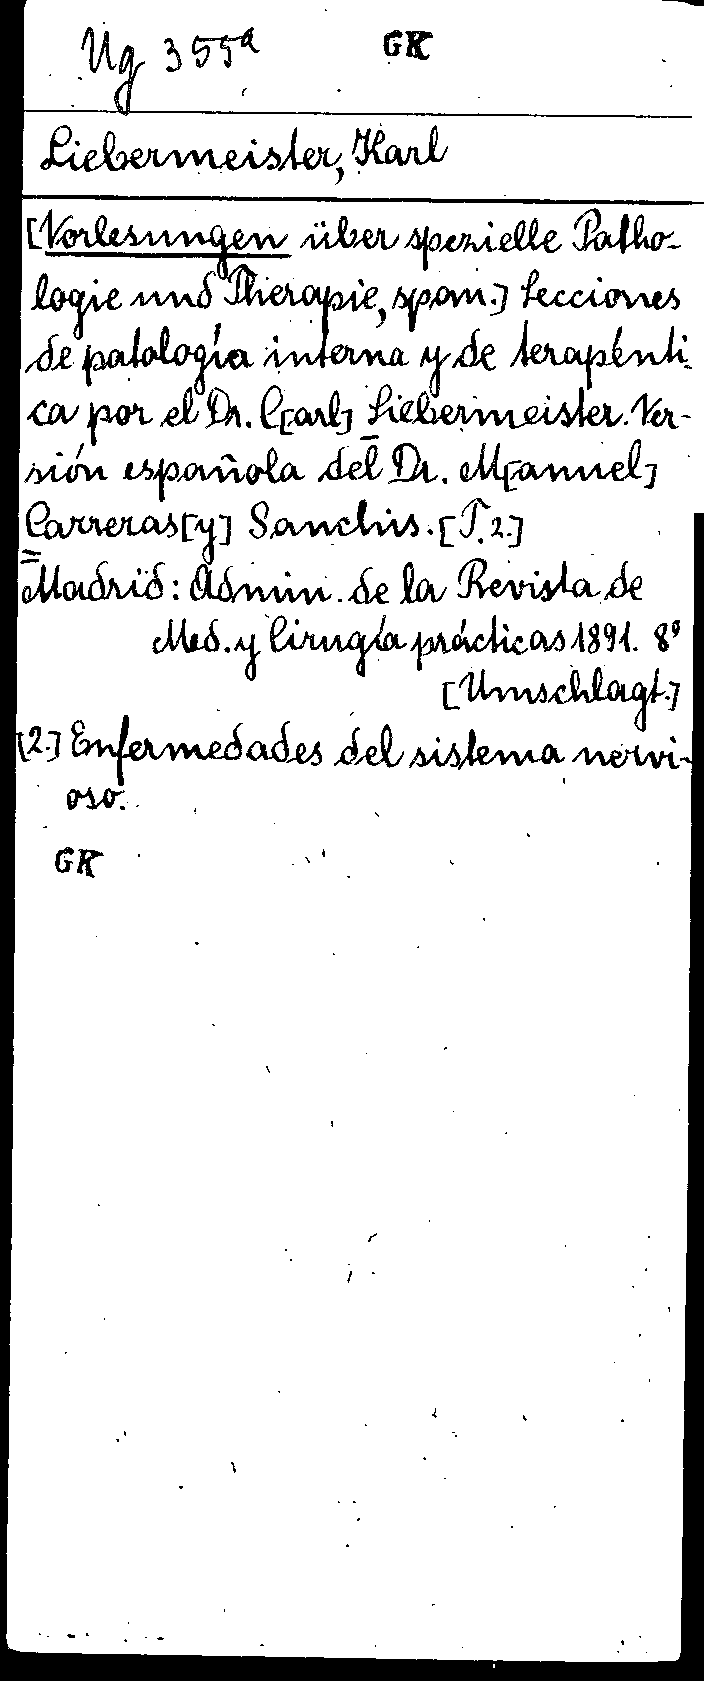 Ug 355a GK
Liebermeister, Karl
[Vorlesungen über spezielle Patho-
logie und Therapie, span.] Lecciones
de patología interna y de terapénti-
ca por el Dr. C[arl] Liebermeister. Ver-
sión española del Dr. M[anuel]
Carreras [y] Sanchis. [T. 2.]
Madrid: Admin. de la Revista de
Med. y Cirugía prácticas 1891. 8°
[Umschlagt.]
[2.] Enfermedades del sistema nervi-
oso.
GK